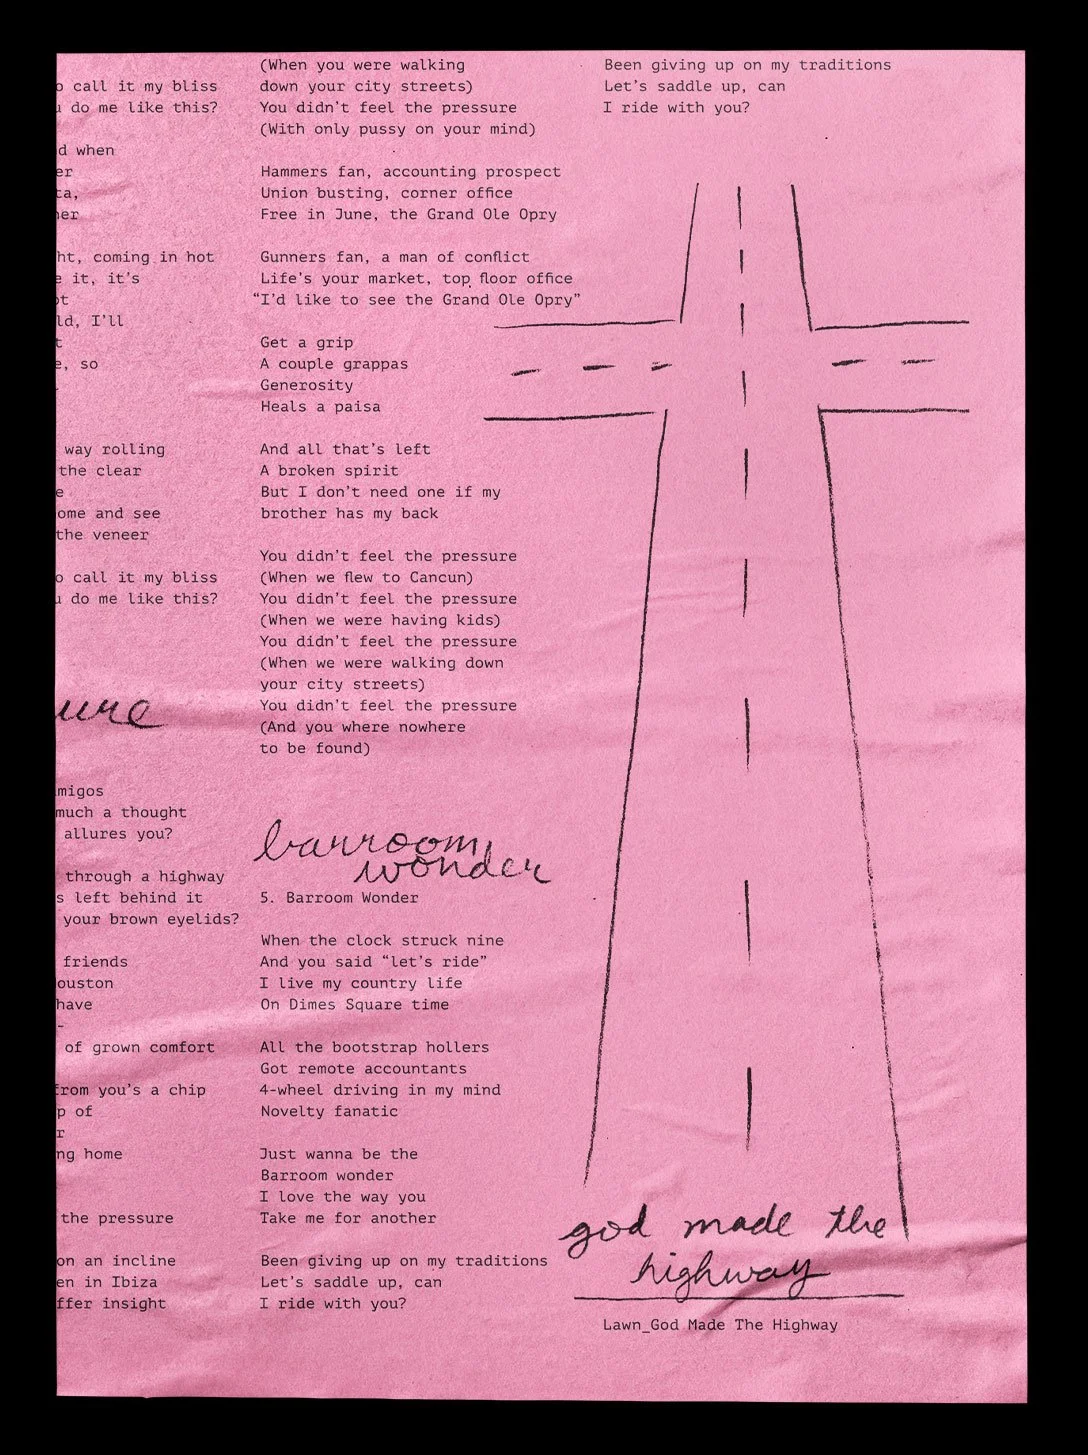 o call it my bliss
u do me like this?
d when
er
ta,
her
ht, coming in hot
e it, it's
ot
ld, I'll
t
e, so
way rolling
the clear
e
ome and see
the veneer
o call it my bliss
u do me like this?
ure
migos
much a thought
allures you?
through a highway
s left behind it
your brown eyelids?
friends
ouston
have
-
of grown comfort
from you's a chip
p of
r
ng home
the pressure
on an incline
en in Ibiza
ffer insight
(When you were walking
down your city streets)
You didn't feel the pressure
(With only pussy on your mind)
Hammers fan, accounting prospect
Union busting, corner office
Free in June, the Grand Ole Opry
Gunners fan, a man of conflict
Life's your market, top floor office
“I'd like to see the Grand Ole Opry”
Get a grip
A couple grappas
Generosity
Heals a paisa
And all that's left
A broken spirit
But I don't need one if my
brother has my back
You didn't feel the pressure
(When we flew to Cancun)
You didn't feel the pressure
(When we were having kids)
You didn't feel the pressure
(When we were walking down
your city streets)
You didn't feel the pressure
(And you where nowhere
to be found)
barroom
wonder
5. Barroom Wonder
When the clock struck nine
And you said “let's ride”
I live my country life
On Dimes Square time
All the bootstrap hollers
Got remote accountants
4-wheel driving in my mind
Novelty fanatic
Just wanna be the
Barroom wonder
I love the way you
Take me for another
Been giving up on my traditions
Let's saddle up, can
I ride with you?
Been giving up on my traditions
Let's saddle up, can
I ride with you?
god made the
highway
Lawn_God Made The Highway